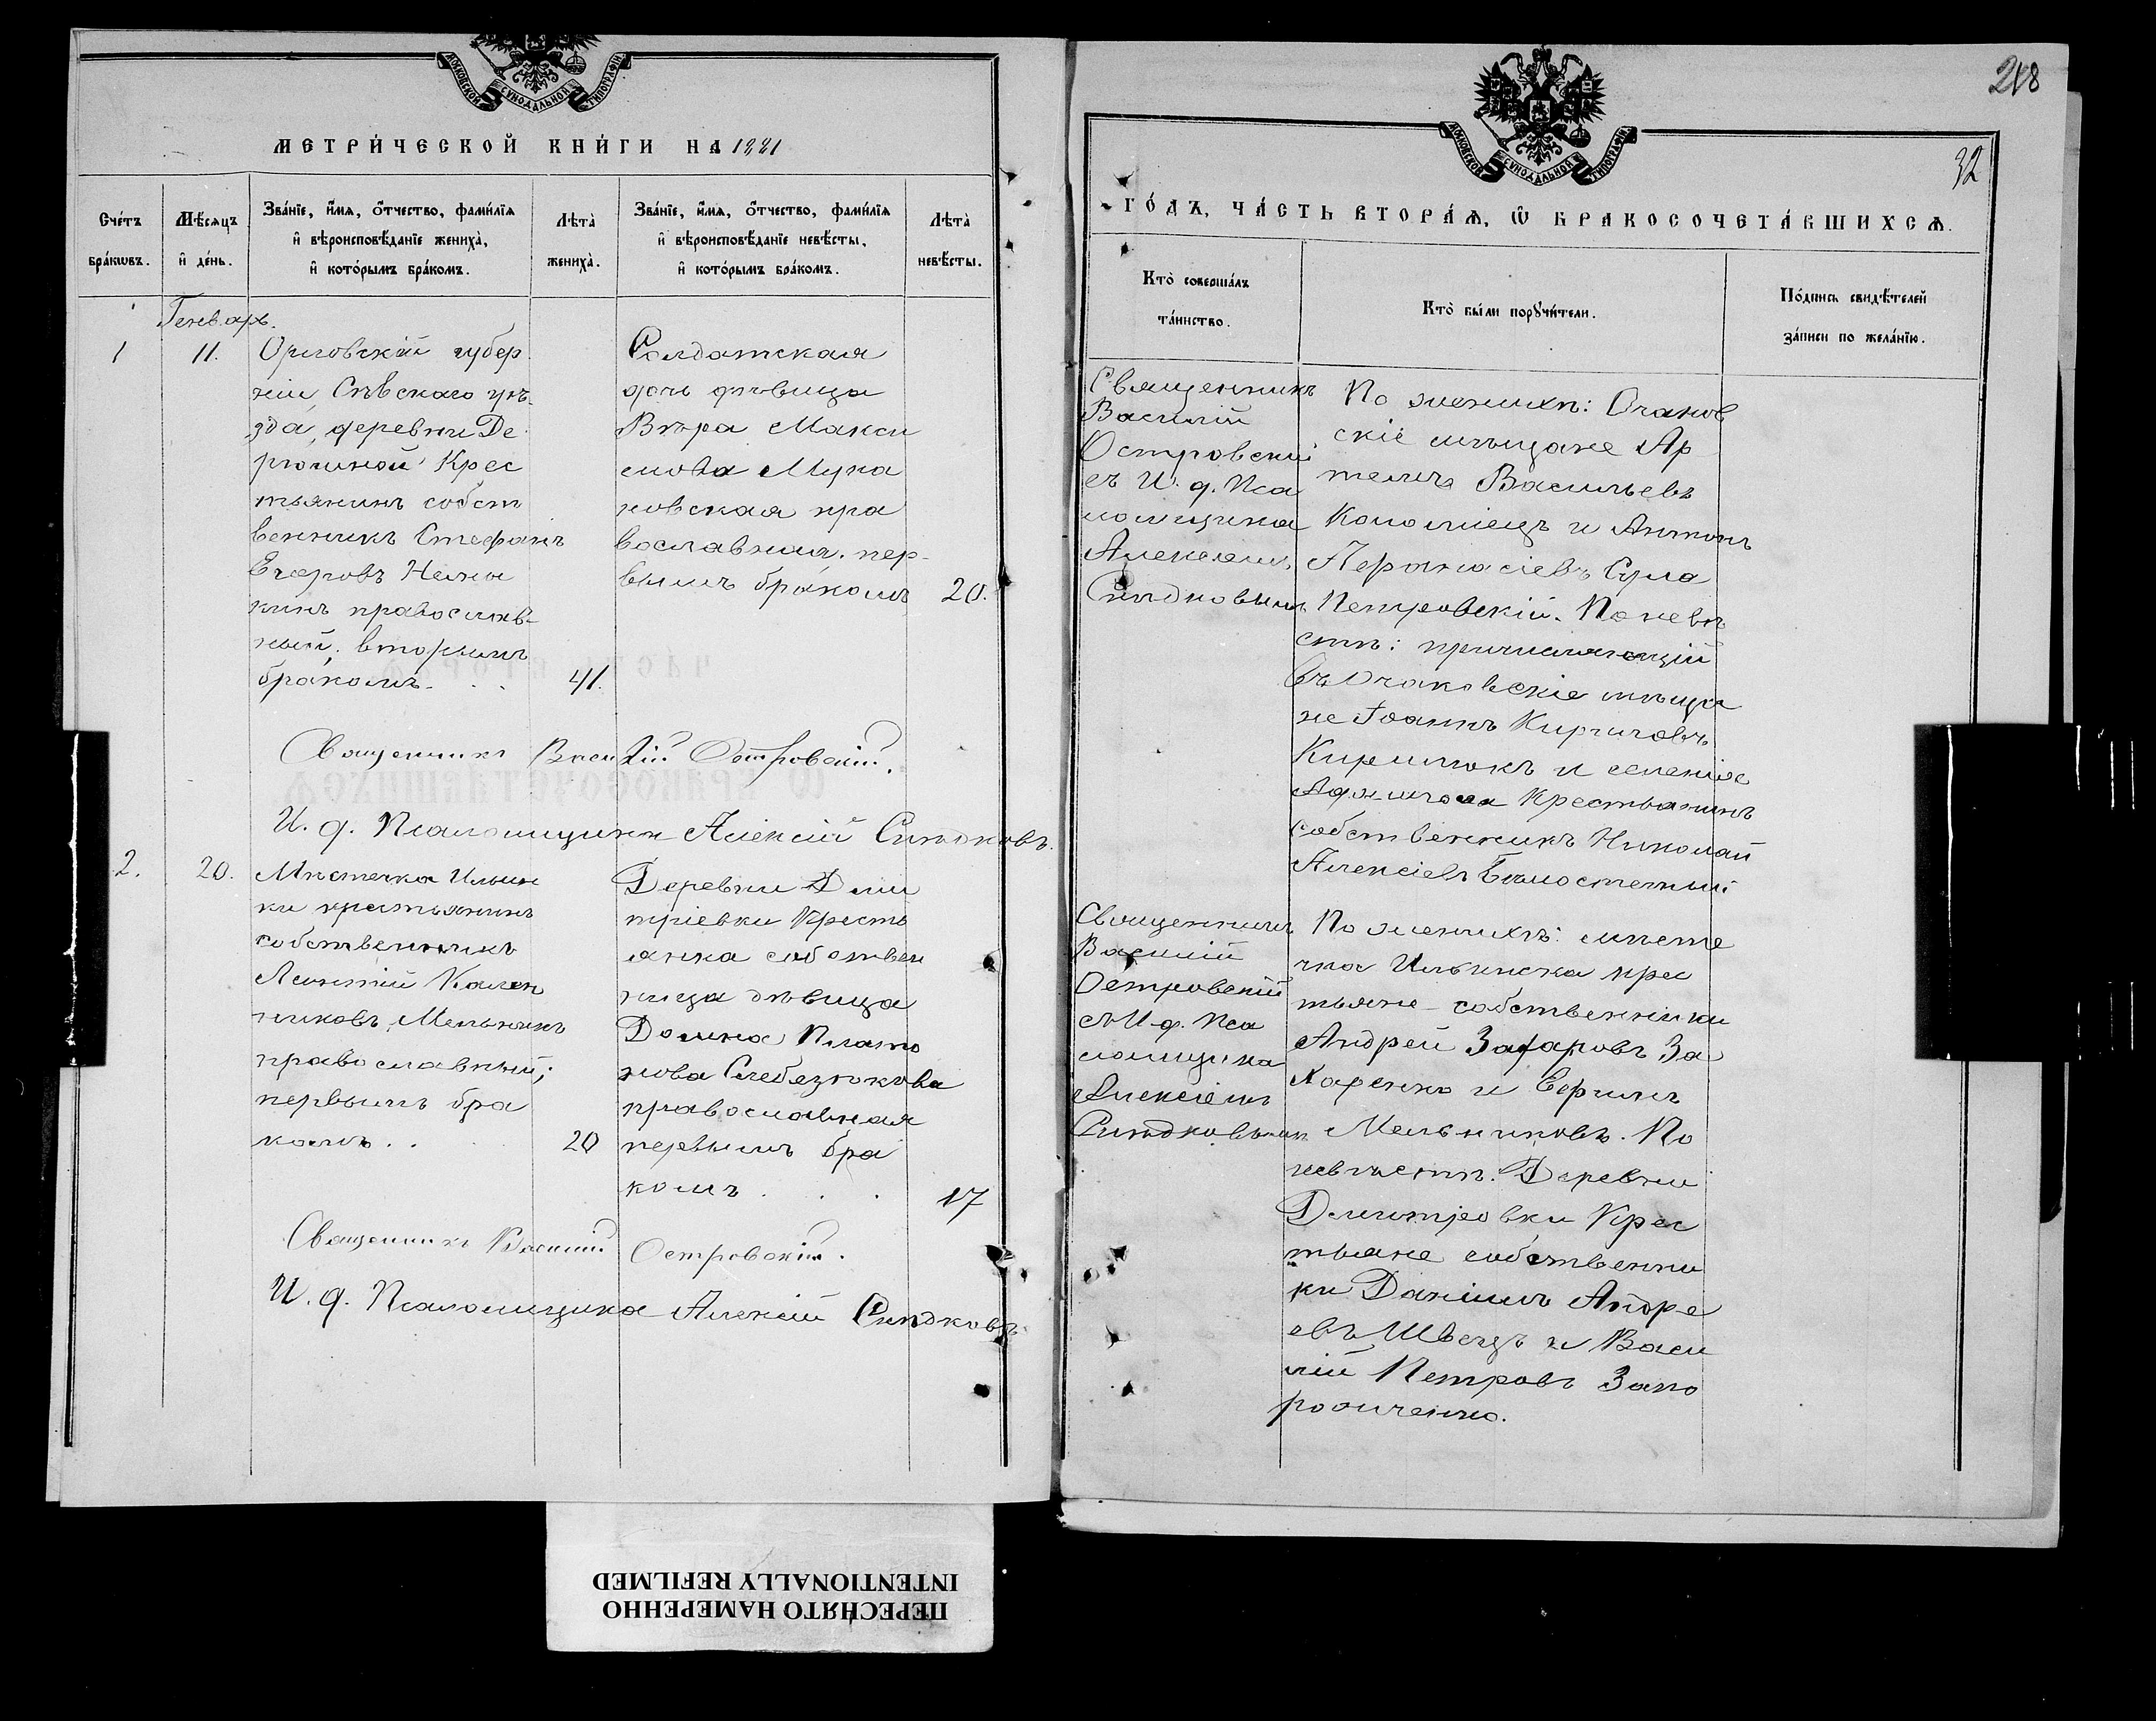 МОСКОВСКОЙ СУНОДАЛЬНОЙ ТИПОГРАФІИ
МЕТРИ́ЧЕСКОЙ КНИ́ГИ НА 1881
Сче́тъ бра́кωвъ.
Мѣ́сяцъ и де́нь.
Зва́нїе, и҆́мя, ѻ҆́тчество, фами́лїя
и҆ вѣроисповѣ́данїе жениха̀,
и҆ кото́рымъ бра́комъ.
Лѣта̀
жениха̀.
Зва́нїе, и҆́мя, ѻ҆́тчество, фами́лїя
и҆ вѣроисповѣ́данїе невѣ́сты,
и҆ кото́рымъ бра́комъ.
Лѣта̀
невѣ́сты.
Генварь.
1
11.
Орловскій губер
ніи, Сѣвскаго уѣ-
зда, деревни Де
рюгиной Крес
тьянинъ собст
венникъ Стефанъ
Егоровъ
кинъ православ-
ный, вторымъ
бракомъ. . .
41.
Солдатская
дочь дѣвица
Вѣра Макси
мова Мука
новская пра
вославная, пер-
вымъ бракомъ
20.
Священникъ Василій Островскій.
И. д. Псаломщика Алексій Синдковъ.
2.
20.
Мѣстечка Ильин
ки крестьянинъ
собственникъ
Леонтій Кален
никовъ Мельникъ
православный;
первымъ бра
комъ. .
20
Деревни Дми
тріевки Кресть
янка собствен
ница дѣвица
Домна Плато
нова Слебезюкова
православная
первымъ бра
комъ . . .
17
Священникъ Василій Островскій.
И. д. Псаломщика Алексій Синдковъ
218
32
МОСКОВСКОЙ СУНОДАЛЬНОЙ ТИПОГРАФІИ
ГО́ДЪ, ЧА́СТЬ ВТОРА́Ѧ, Ѽ БРАКОСОЧЕТА́ВШИХСѦ.
Кто̀ соверша́лъ
та́инство.
Кто̀ бы́ли порꙋчи́тели.
По́дпись свидѣ́телей
за́писи по жела́нїю.
Священникъ
Василій
Островскій
съ И. д. Пса
ломщика
Алексѣемъ
Синдковымъ
По женихѣ: Очаков
скіе мѣщане Ар
темъ Васильевъ
Коломіецъ и Антонъ
Аѳанасіевъ Сула
Петровскій. По невѣ
стѣ: причисляющій
въ Очаковскіе мѣща
не Іоаннъ Кириловъ
Кирилюкъ и селенія
Аджигола Крестьянинъ
собственникъ Николай
Алексіевъ
Священникъ
Василій
Островскій
съ И. д. Пса
ломщика
Алексіемъ
Синдковымъ
По женихѣ: мѣсте
чка Ильинска крес
тьяне собственники
Андрей Захаровъ За
харенко и Ефимъ
Мельниковъ. По
невѣстѣ: Деревни
Дмитровки Крес
тьяне собственни
ки Даніилъ Андре
евъ Швецъ и Васи
лій Петровъ Запо
рожченко.
ПЕРЕСНЯТО НАМЕРЕННО
INTENTIONALLY REFILMED